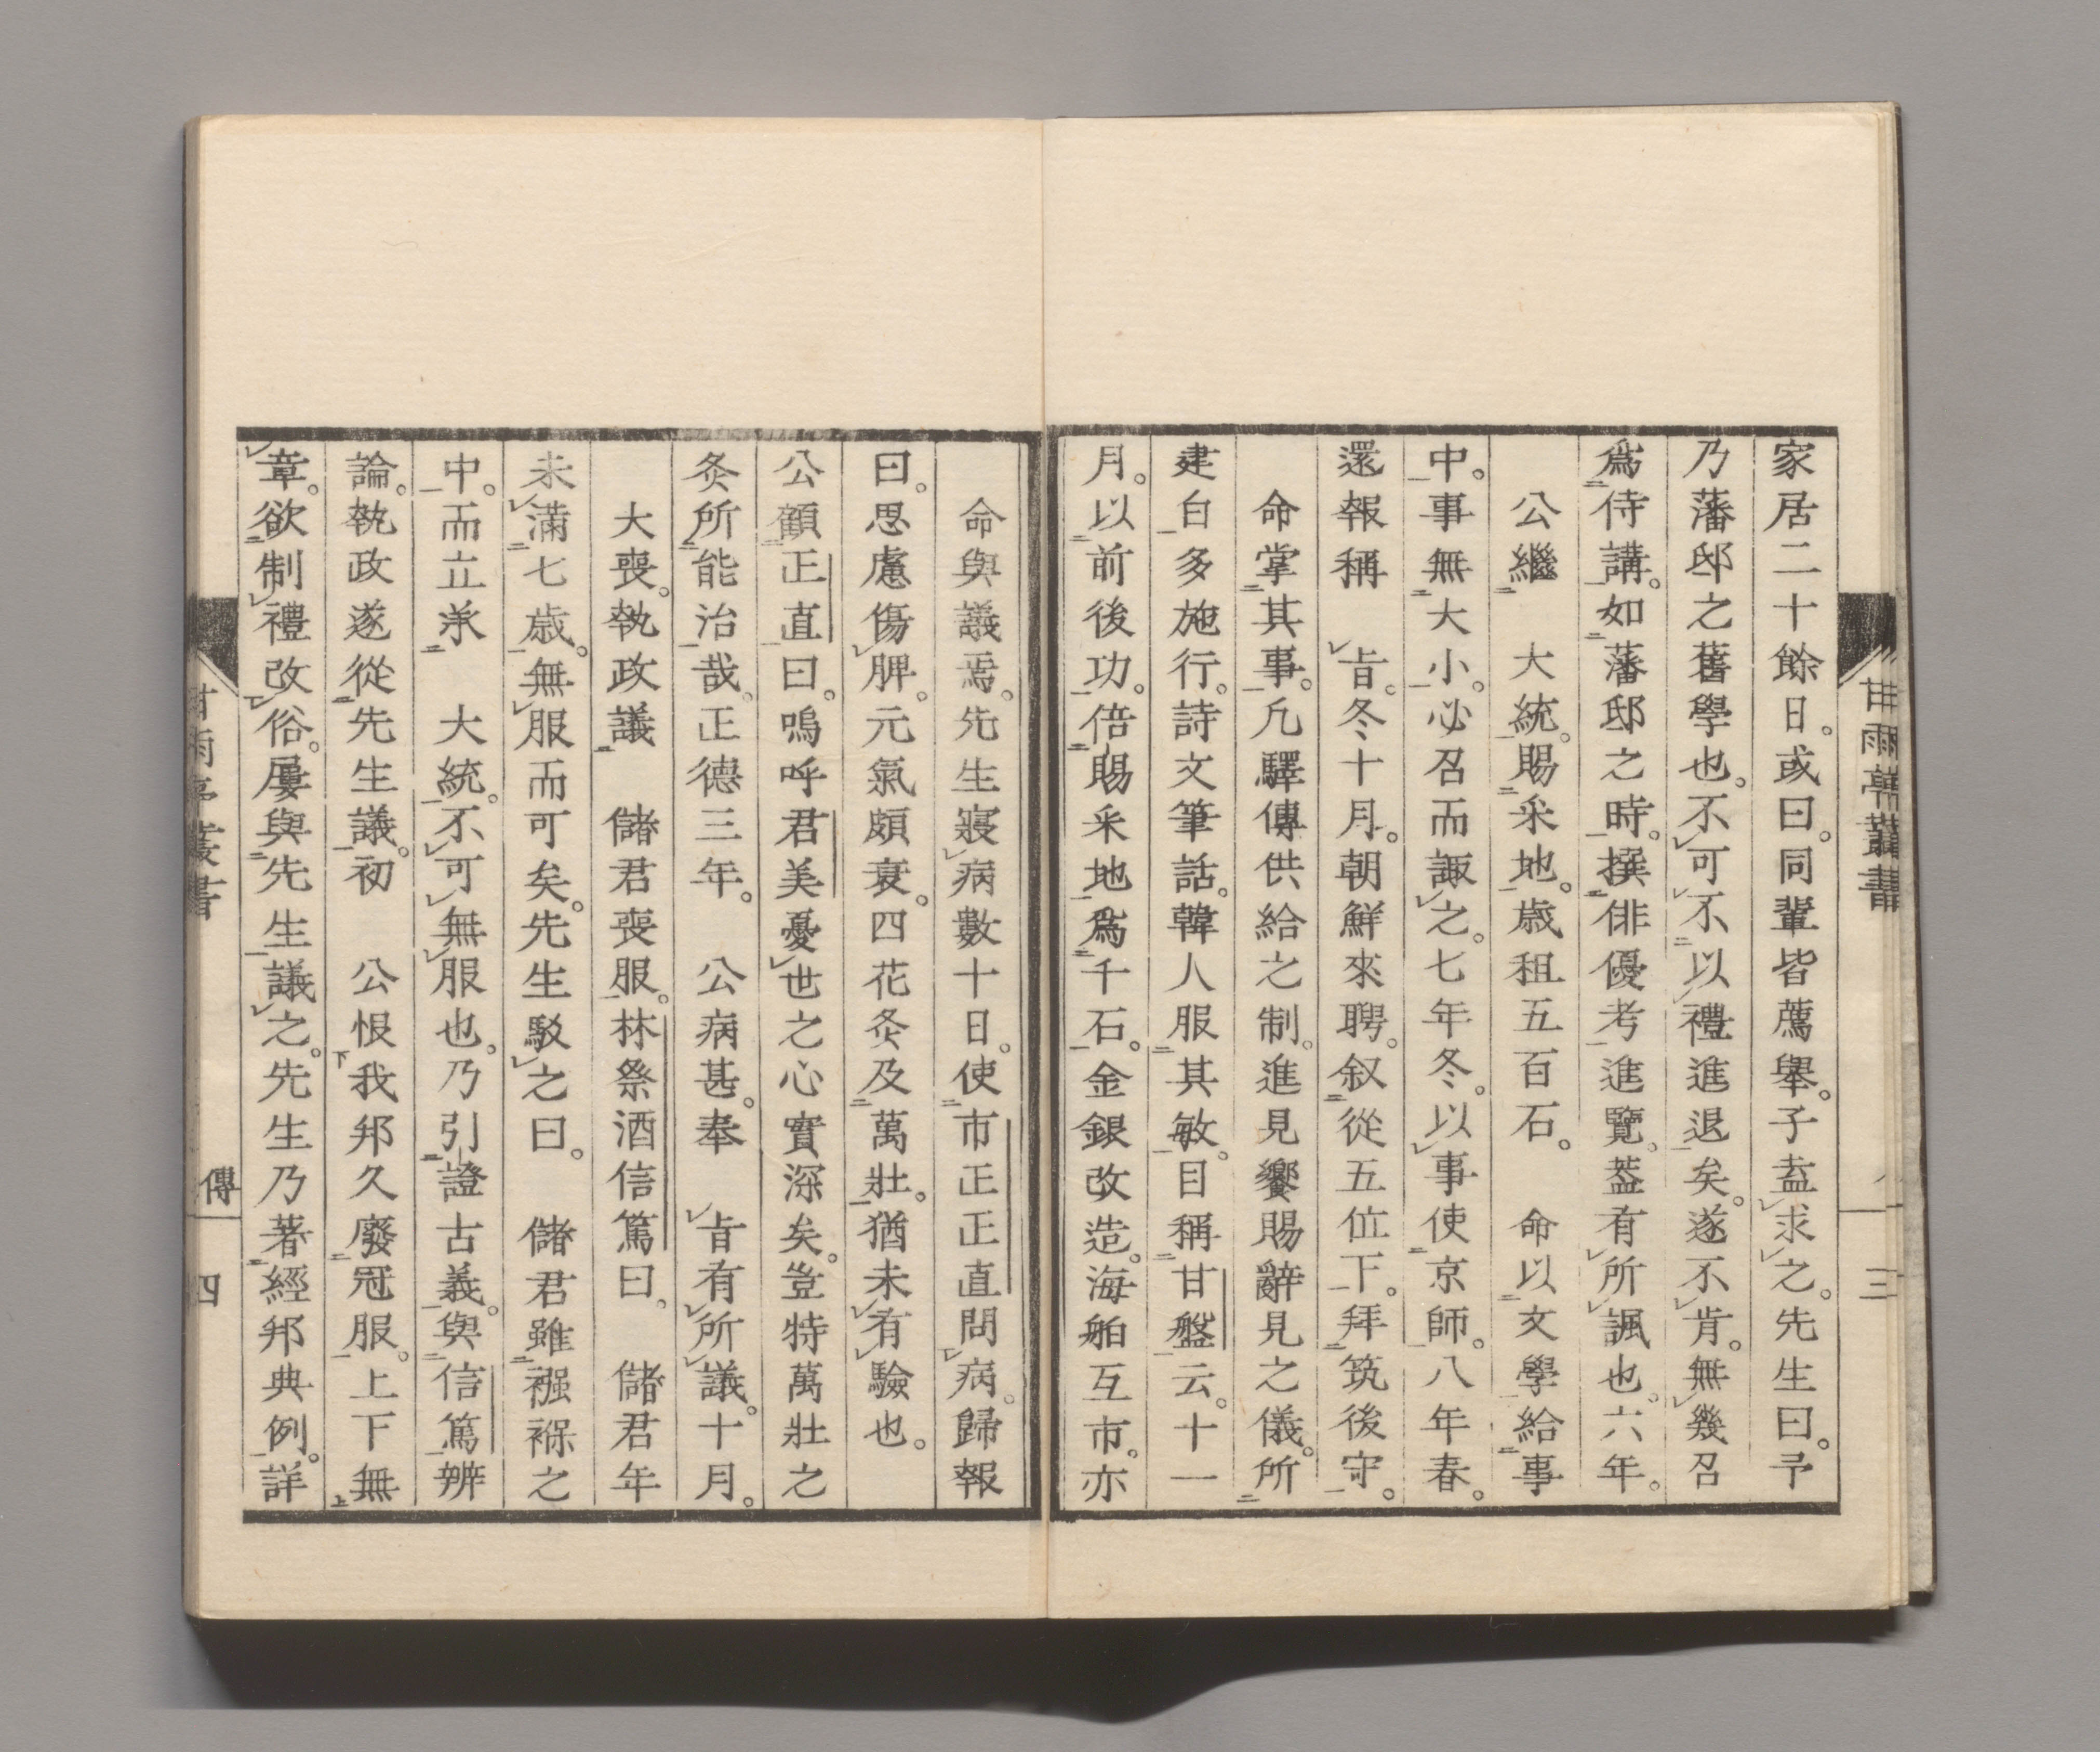 家居二十餘日。或曰。同輩皆薦舉。子盍求之。先生曰。予
乃藩邸之舊學也。不可不以禮進退矣。遂不肯。無幾召
爲侍講。如藩邸之時。撰俳優考進覽。葢有所諷也。六年。
公繼 大統。賜采地。歳租五百石。 命以文學給事
中。事無大小。必召而諏之。七年冬。以事使京師。八年春。
還報稱 旨。冬十月。朝鮮來聘。叙從五位下。拜筑後守。
命掌其事。凡驛傳供給之制。進見饗賜辭見之儀。所
建白多施行。詩文筆話。韓人服其敏。目稱甘盤云。十一
月。以前後功。倍賜采地。爲千石。金銀改造。海舶互市。亦
甘雨亭叢書
三
命與議焉。先生寢病數十日。使市正正直問病。歸報
曰。思慮傷脾。元氣頗衰。四花灸及萬壯。猶未有驗也。
公顧正直曰。嗚呼君美憂世之心實深矣。豈特萬壯之
灸所能治哉。正德三年。 公病甚。奉 旨有所議。十月。
大喪。執政議 儲君喪服。林祭酒信篤曰。 儲君年
未滿七歳。無服而可矣。先生駁之曰。 儲君雖襁褓之
中。而立承 大統。不可無服也。乃引證古義。與信篤辨
論。執政遂從先生議。初 公恨我邦久廢冠服。上下無
章。欲制禮改俗。屢與先生議之。先生乃著經邦典例。詳
甘雨亭叢書
傳
四